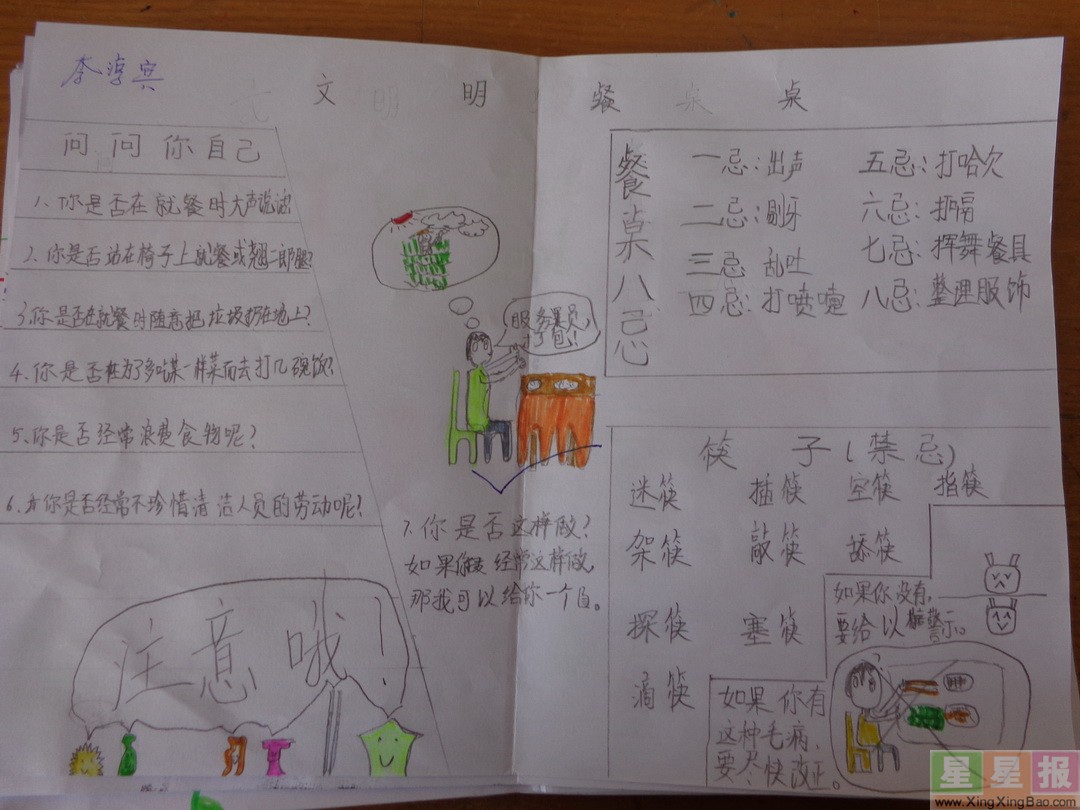 李淳宾
文明餐桌
问问你自己
1、你是否在就餐时大声说话?
2、你是否站在椅子上就餐或翘二郎腿?
3、你是否在就餐时随意把垃圾扔在地上?
4、你是否在为了多吃某一样菜而去打几碗饭?
5、你是否经常浪费食物呢?
6、你是否经常不珍惜清洁人员的劳动呢?
注意哦!
服务员
打包!
7、你是否这样做?
如果你经常这样做,
那我可以给你一个
餐桌八忌
一忌:出声
二忌:剔牙
三忌 乱吐
四忌:打喷嚏
五忌:打哈欠
六忌:打嗝
七忌:挥舞餐具
八忌:整理服饰
筷子(禁忌)
迷筷 插筷 空筷 指筷
架筷 敲筷 舔筷
探筷 塞筷
滴筷
如果你没有,
要给以警示。
如果你有
这种毛病,
要尽快改正。
星星报
www.XingXingBao.com